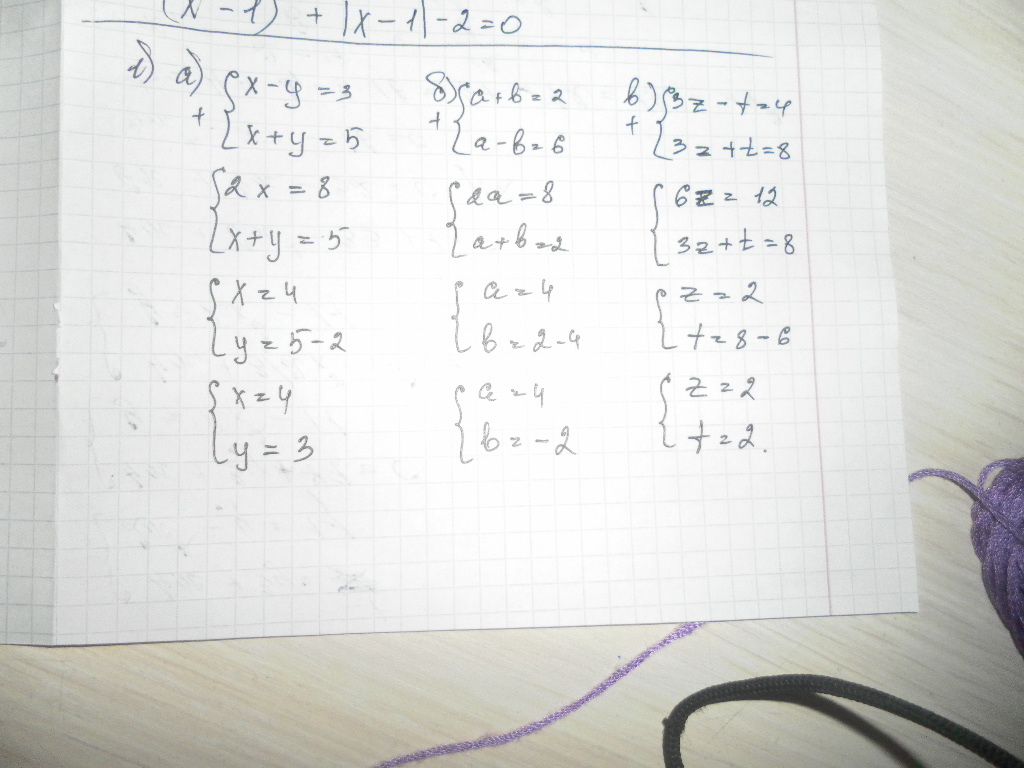 (x-1) + |x-1| -2=0
1) а) {x-y=3
+ x+y=5
{2x=8
x+y=5
{x=4
y=5-2
{x=4
y=3
б) {a+b=2
+ a-b=6
{2a=8
a+b=2
{a=4
b=2-4
{a=4
b=-2
в) {3z-t=4
+ 3z+t=8
{6z=12
3z+t=8
{z=2
t=8-6
{z=2
t=2.